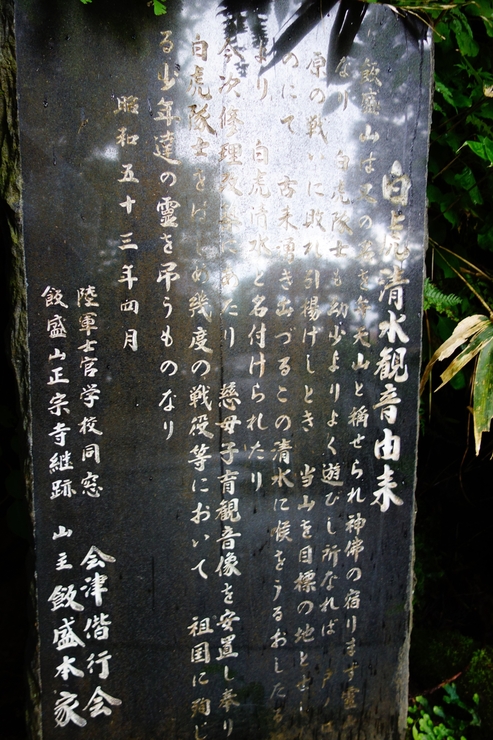 白虎清水観音由来
飯盛山は又の名を弁天山と称せられ神佛の宿ります霊
なり 白虎隊士も幼少よりよく遊びし所なれば 戸ノ口
原の戦いに敗れ引揚げしとき 当山を目標の地とせし
のにて 古来湧き出づるこの清水に喉をうるおしたる
より 白虎清水と名付けられたり
今次修理 にあたり 慈母子育観音像を安置し奉り
白虎隊士をはじめ幾度の戦役等において 祖国に殉じ
る少年達の霊を弔うものなり
昭和五十三年四月
陸軍士官学校同窓 会津偕行会
飯盛山正宗寺継跡 山主 飯盛本家